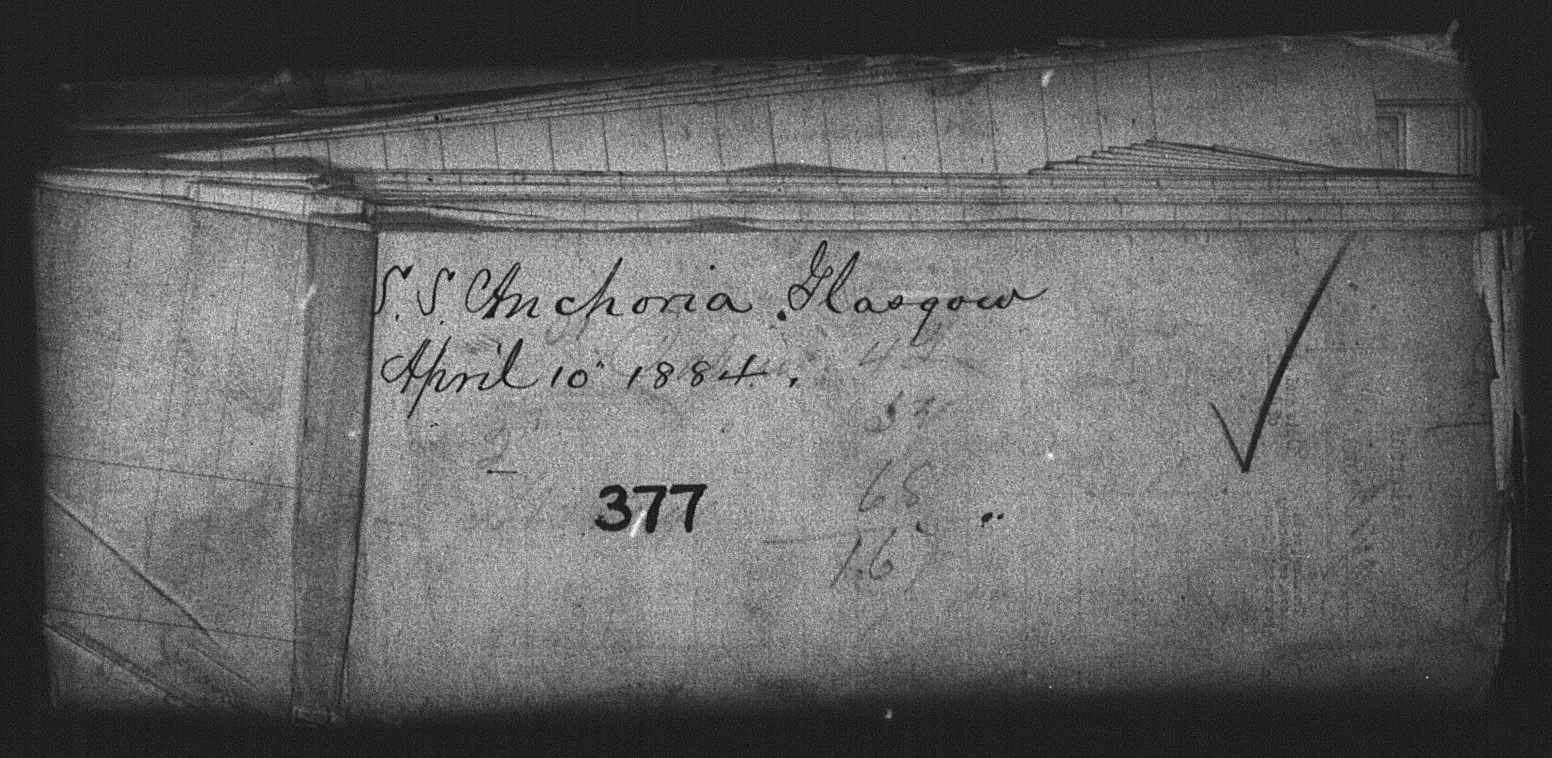 S. S. Anchoria. Glasgow
April 10" 1884.
377
68
167